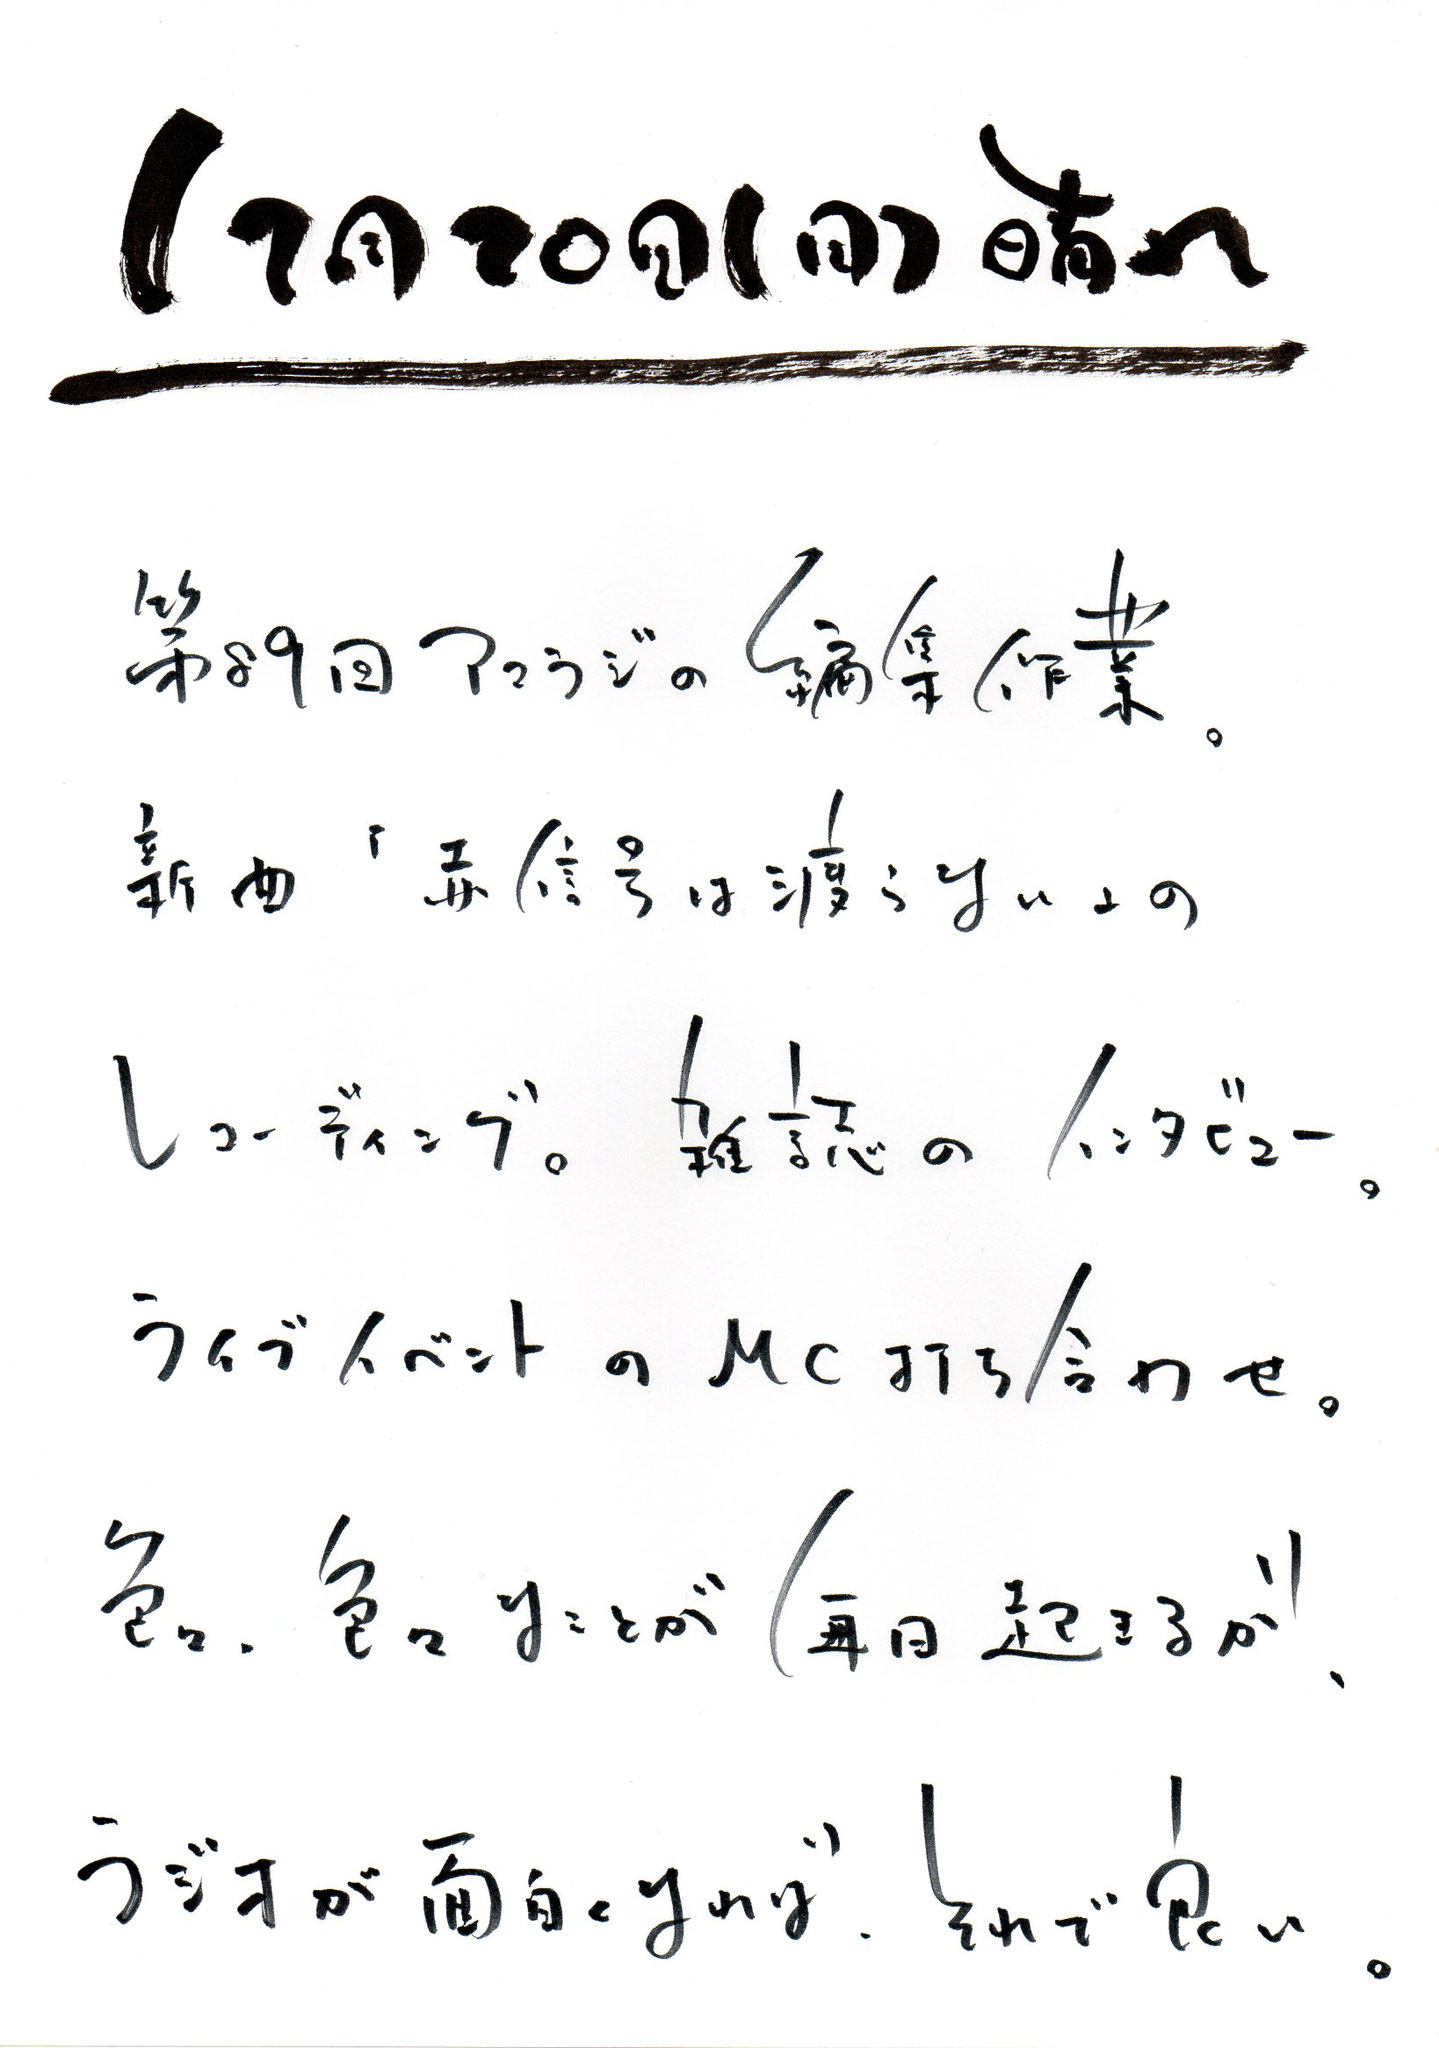 12月20日(月)晴れ
第89回アコラジの編集作業。
新曲「赤信号は渡らない」の
レコーディング。雑誌のインタビュー。
ライブイベントのMC打ち合わせ。
色々、色々なことが毎日起きるが、
ラジオが面白くなれば、それで良い。